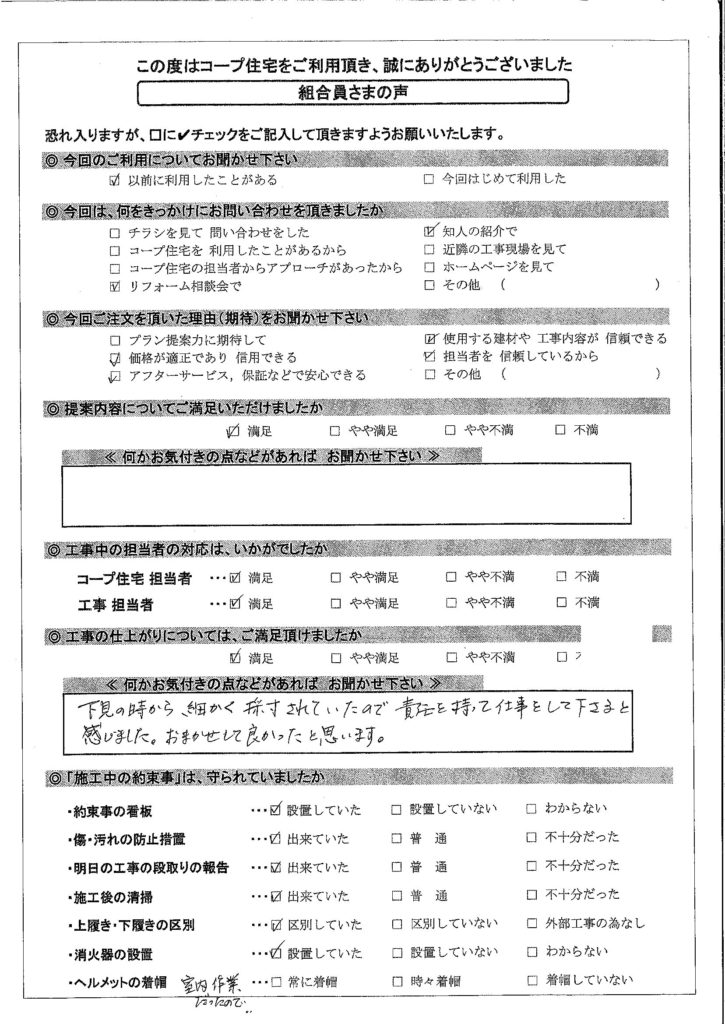 この度はコープ住宅をご利用頂き、誠にありがとうございました
組合員さまの声
恐れ入りますが、口に✔チェックをご記入して頂きますようお願いいたします。
◎ 今回のご利用についてお聞かせ下さい
☑ 以前に利用したことがある □ 今回はじめて利用した
◎ 今回は、何をきっかけにお問い合わせを頂きましたか
□ チラシを見て 問い合わせをした ☑ 知人の紹介で
□ コープ住宅を 利用したことがあるから □ 近隣の工事現場を見て
□ コープ住宅の担当者からアプローチがあったから □ ホームページを見て
☑ リフォーム相談会で □ その他 ( )
◎ 今回ご注文を頂いた理由(期待)をお聞かせ下さい
□ プラン提案力に期待して ☑ 使用する建材や 工事内容が 信頼できる
☑ 価格が適正であり 信用できる ☑ 担当者を 信頼しているから
☑ アフターサービス，保証などで安心できる □ その他 ( )
◎ 提案内容についてご満足いただけましたか
☑ 満足 □ やや満足 □ やや不満 □ 不満
≪ 何かお気付きの点などがあれば お聞かせ下さい ≫
◎ 工事中の担当者の対応は、いかがでしたか
コープ住宅 担当者 …☑ 満足 □ やや満足 □ やや不満 □ 不満
工事 担当者 …☑ 満足 □ やや満足 □ やや不満 □ 不満
◎ 工事の仕上がりについては、ご満足頂けましたか
☑ 満足 □ やや満足 □ やや不満 □
≪ 何かお気付きの点などがあれば お聞かせ下さい ≫
下見の時から、細かく採寸されていたので責任を持って仕事をして下さると
感じました。おまかせして良かったと思います。
◎ 「施工中の約束事」は、守られていましたか
・約束事の看板 …☑ 設置していた □ 設置していない □ わからない
・傷・汚れの防止措置 …☑ 出来ていた □ 普 通 □ 不十分だった
・明日の工事の段取りの報告 …☑ 出来ていた □ 普 通 □ 不十分だった
・施工後の清掃 …☑ 出来ていた □ 普 通 □ 不十分だった
・上履き・下履きの区別 …☑ 区別していた □ 区別していない □ 外部工事の為なし
・消火器の設置 …☑ 設置していた □ 設置していない □ わからない
・ヘルメットの着帽 室内作業 …□ 常に着帽 □ 時々着帽 □ 着帽していない
だったので‥